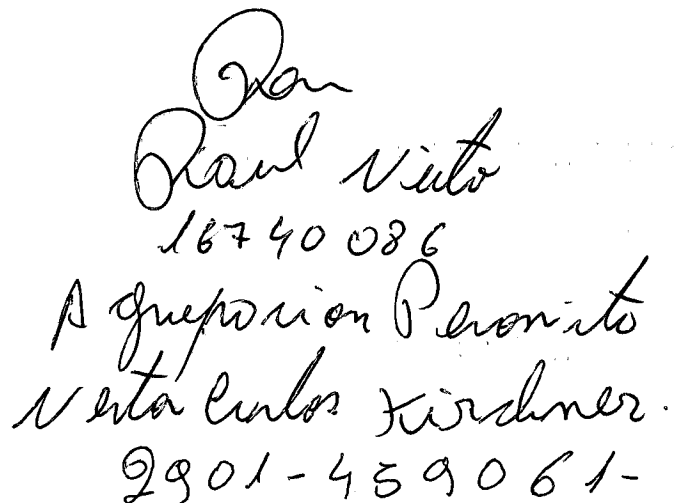 Rau
Raul Nieto
16740086
Agrupacion Peronista
Nestor Carlos Kirchner.
2901-459061-